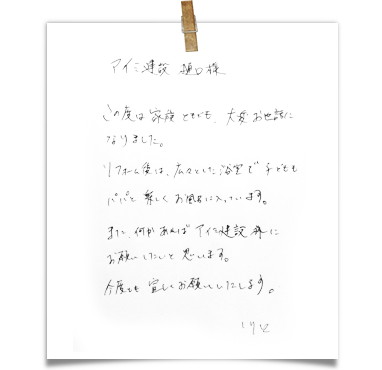 アイミ建設 樋口様
この度は家族ともども、大変お世話に
なりました。
リフォーム後は、広々とした浴室で子どもも
パパと楽しくお風呂に入っています。
また、何かあればアイミ建設様に
お願いしたいと思います。
今度とも宜しくお願いいたします。